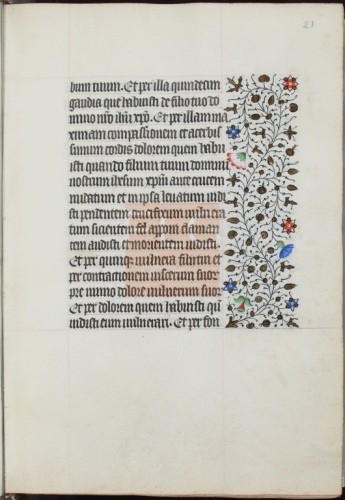 21
bum tuum. Et per illa quindecim
gaudia que habuisti de filio tuo do
mino nr̄o ih̄u xp̄o. Et per illam ma
ximam compassionem et acerbis
simum cordis dolorem quem habu
isti quando filium tuum dominum
nostrum ihesum xp̄m ante crucem
nudatum et in ipsa levatum vidi
sti pendentem crucifixum vulnera
tum sicientem fel apponi claman
tem audisti et morientem vidisti.
Et per quinque vulnera filii tui et
per contractionem viscerum suor
pre nimio dolore vulnerum suor
Et per dolorem quem habuisti qn̄
vidisti eum vulnerari. Et per fon